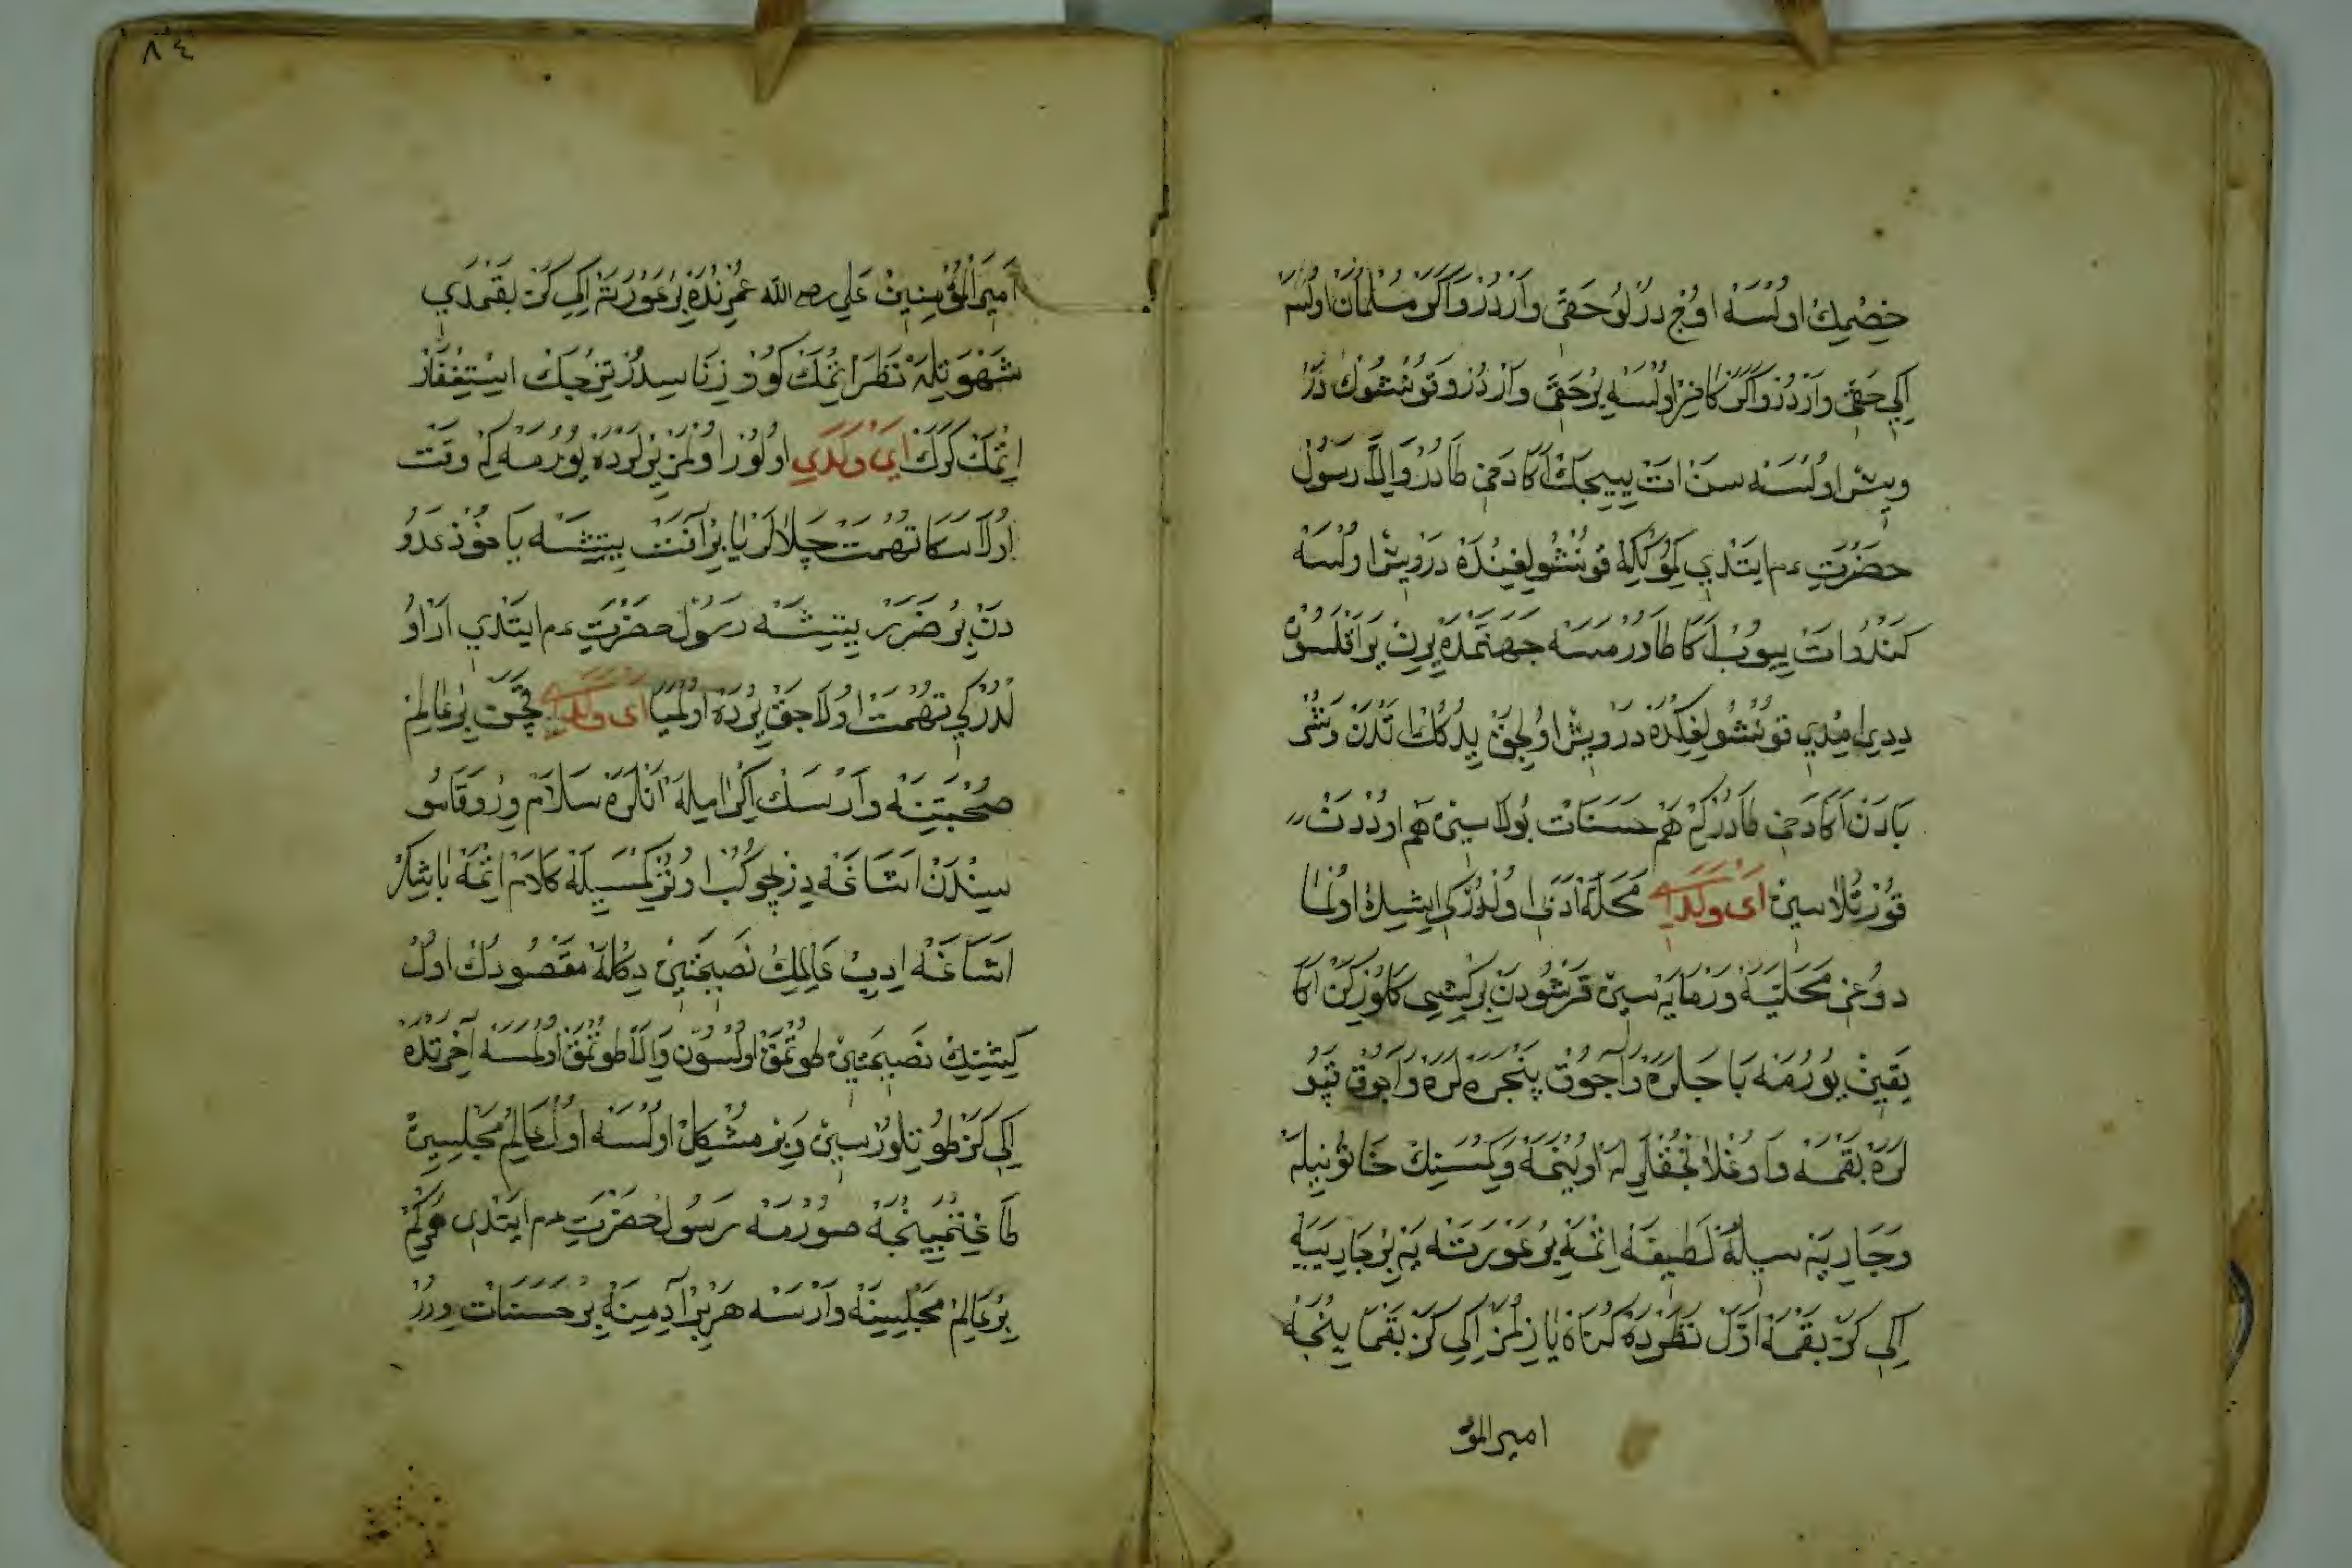 خِصْمِكْ اولْسَه اوُچْ دُرْلُو حَقّى وَارْدُرْ وَاكَرْ مُسُلْمَانْ اولْسَه
اِكِي حَقّى وَارْدُرْ وَاكَرْ كَافِرْ اولْسَه بِرْ حَقّى وَارْدُرْ وَقُونْشُوكْ دَرْ
ويش اولْسَه سَنْ اتْ يِييجَكْ اَكَا دَخِي طَادُرْ وَاِلَّا رَسُولْ
حَضْرَتِ عم ايتْدِي كِمُوكْكِه قُونْشُولِغِنْدَه دَرْوِيشْ اولْسَه
كَنْدُو اتْ يِيوُبْ اَكَا طَاوُرْمَسَه جَهَنَّمْدَه يِرِنْ يَرَاقْلَسُونْ
دِدِي اِمْدِي قُونْشُولِغِكْدَه دَرْوِيشْ اولِجَقْ يِدُكُكْ اتْدَنْ وَشُرْ
بَادَنْ اَكَا دَخِي طَادُرْ كِمْ هَمْ حَسَنَاتْ بُولَاسِينْ هَمْ اودْدَنْ
قُورْتُلَاسِينْ اَىْ وَلَدِي مَحَلَّه اَدَبِي اولْدُرْ كِي ايشِكْ اولْمَا
دوُغِي مَحَلَّيَه وَرْمَايَه سِينْ قَرْشُودَنْ بِرْ كِشِي كَلُورْكَنْ اَكَا
يَقِينْ يُورُمَه بَاجَلَرَه وَاچُوقْ پَنْجَرَه لَرَه وَآچُوقْ قَپُو
لَرَه بَقْمَه وَاوغْلَانْجُقْلَرِ لَه اويْنَمَه وَكِمْسَنِكْ خَاتُونِيلَه
وَجَارِيَه سِيلَه لَطِيفَه اِتْمَه بِرْ عَوْرَتَه يَه بِرْ جَارِيَيَه
اِكِي كَرَّ بَقْمَه اَوَّلْ نَظَرْدَه كُنَاه يَازِلْمَزْ اِكِي كَرَّ بَقْمَا يِنْجَه
امير المؤ
٨٤
اَمِيرَ الْمُؤْمِنِينْ عَلِي رضي الله عُمْرِنْدَه بِرْ عَوْرَتَه اِكِي كَرَّ بَقْمَدِي
شَهْوَتِلَه نَظَرْ اِتْمَكْ كُوزْ زِنَاسِيدُرْ تِيزْجَكْ اِسْتِغْفَارْ
اِتْمَكْ كَرَكْ اَىْ وَلَدِي اولُورْ اولْمَزْ يِرْلَرْدَه يُورُمَه كِمْ وَقْتْ
اولَا سَكَا تُهْمَتْ چَلَالَرْ يَا بِرْ آفَتْ يِتِيشَه يَاخُوذْ عَدُو
دَنْ بِرْ ضَرَرْ يِتِيشَه رَسُولْ حَضْرَتِ عم ايتْدِي اَرْ اوُ
لْدُرْ كِي تُهْمَتْ اولَاجَقْ يِرْدَه اولْمَيَا اَىْ وَلَدِي قَچَنْ بِرْ عَالِمْ
صُحْبَتِنَه وَارْسَكْ اِكْرَامِلَه آنْلَرَه سَلَامْ وِرْ وَقَامُو
سِينْدَنْ اَشَاغَه دِزْچُوكُبْ اوتُرْ كِمْسَيِلَه كَلَامْ اِتْمَه بَاشِكْ
اَشَاغَه اِدِبْ عَالِمِكْ نَصِيحَتِينْ دِكْلَه مَقْصُودُكْ اولْ
كِشِنِكْ نَصِيحَتِينْ طُوتْمَقْ اولْسُونْ وَاِلَّا طُوتْمَقْ اولْمَسَه آخِرَتْدَه
اِكِي كَزْ طُوتِلُورْسِينْ وَبِرْ مُشْكِلْ اولْسَه اولْ عَالِمْ مَجْلِسِينْ
طَاغِتْمَيِنْجَه صُورْمَه رَسُولْ حَضْرَتِ عم ايتْدِي هَرْكِمْ
بِرْ عَالِمْ مَجْلِيسِنَه وَارْسَه هَرْ بِرْ آدِمِنَه بِرْ حَسَنَاتْ وِرُرْ